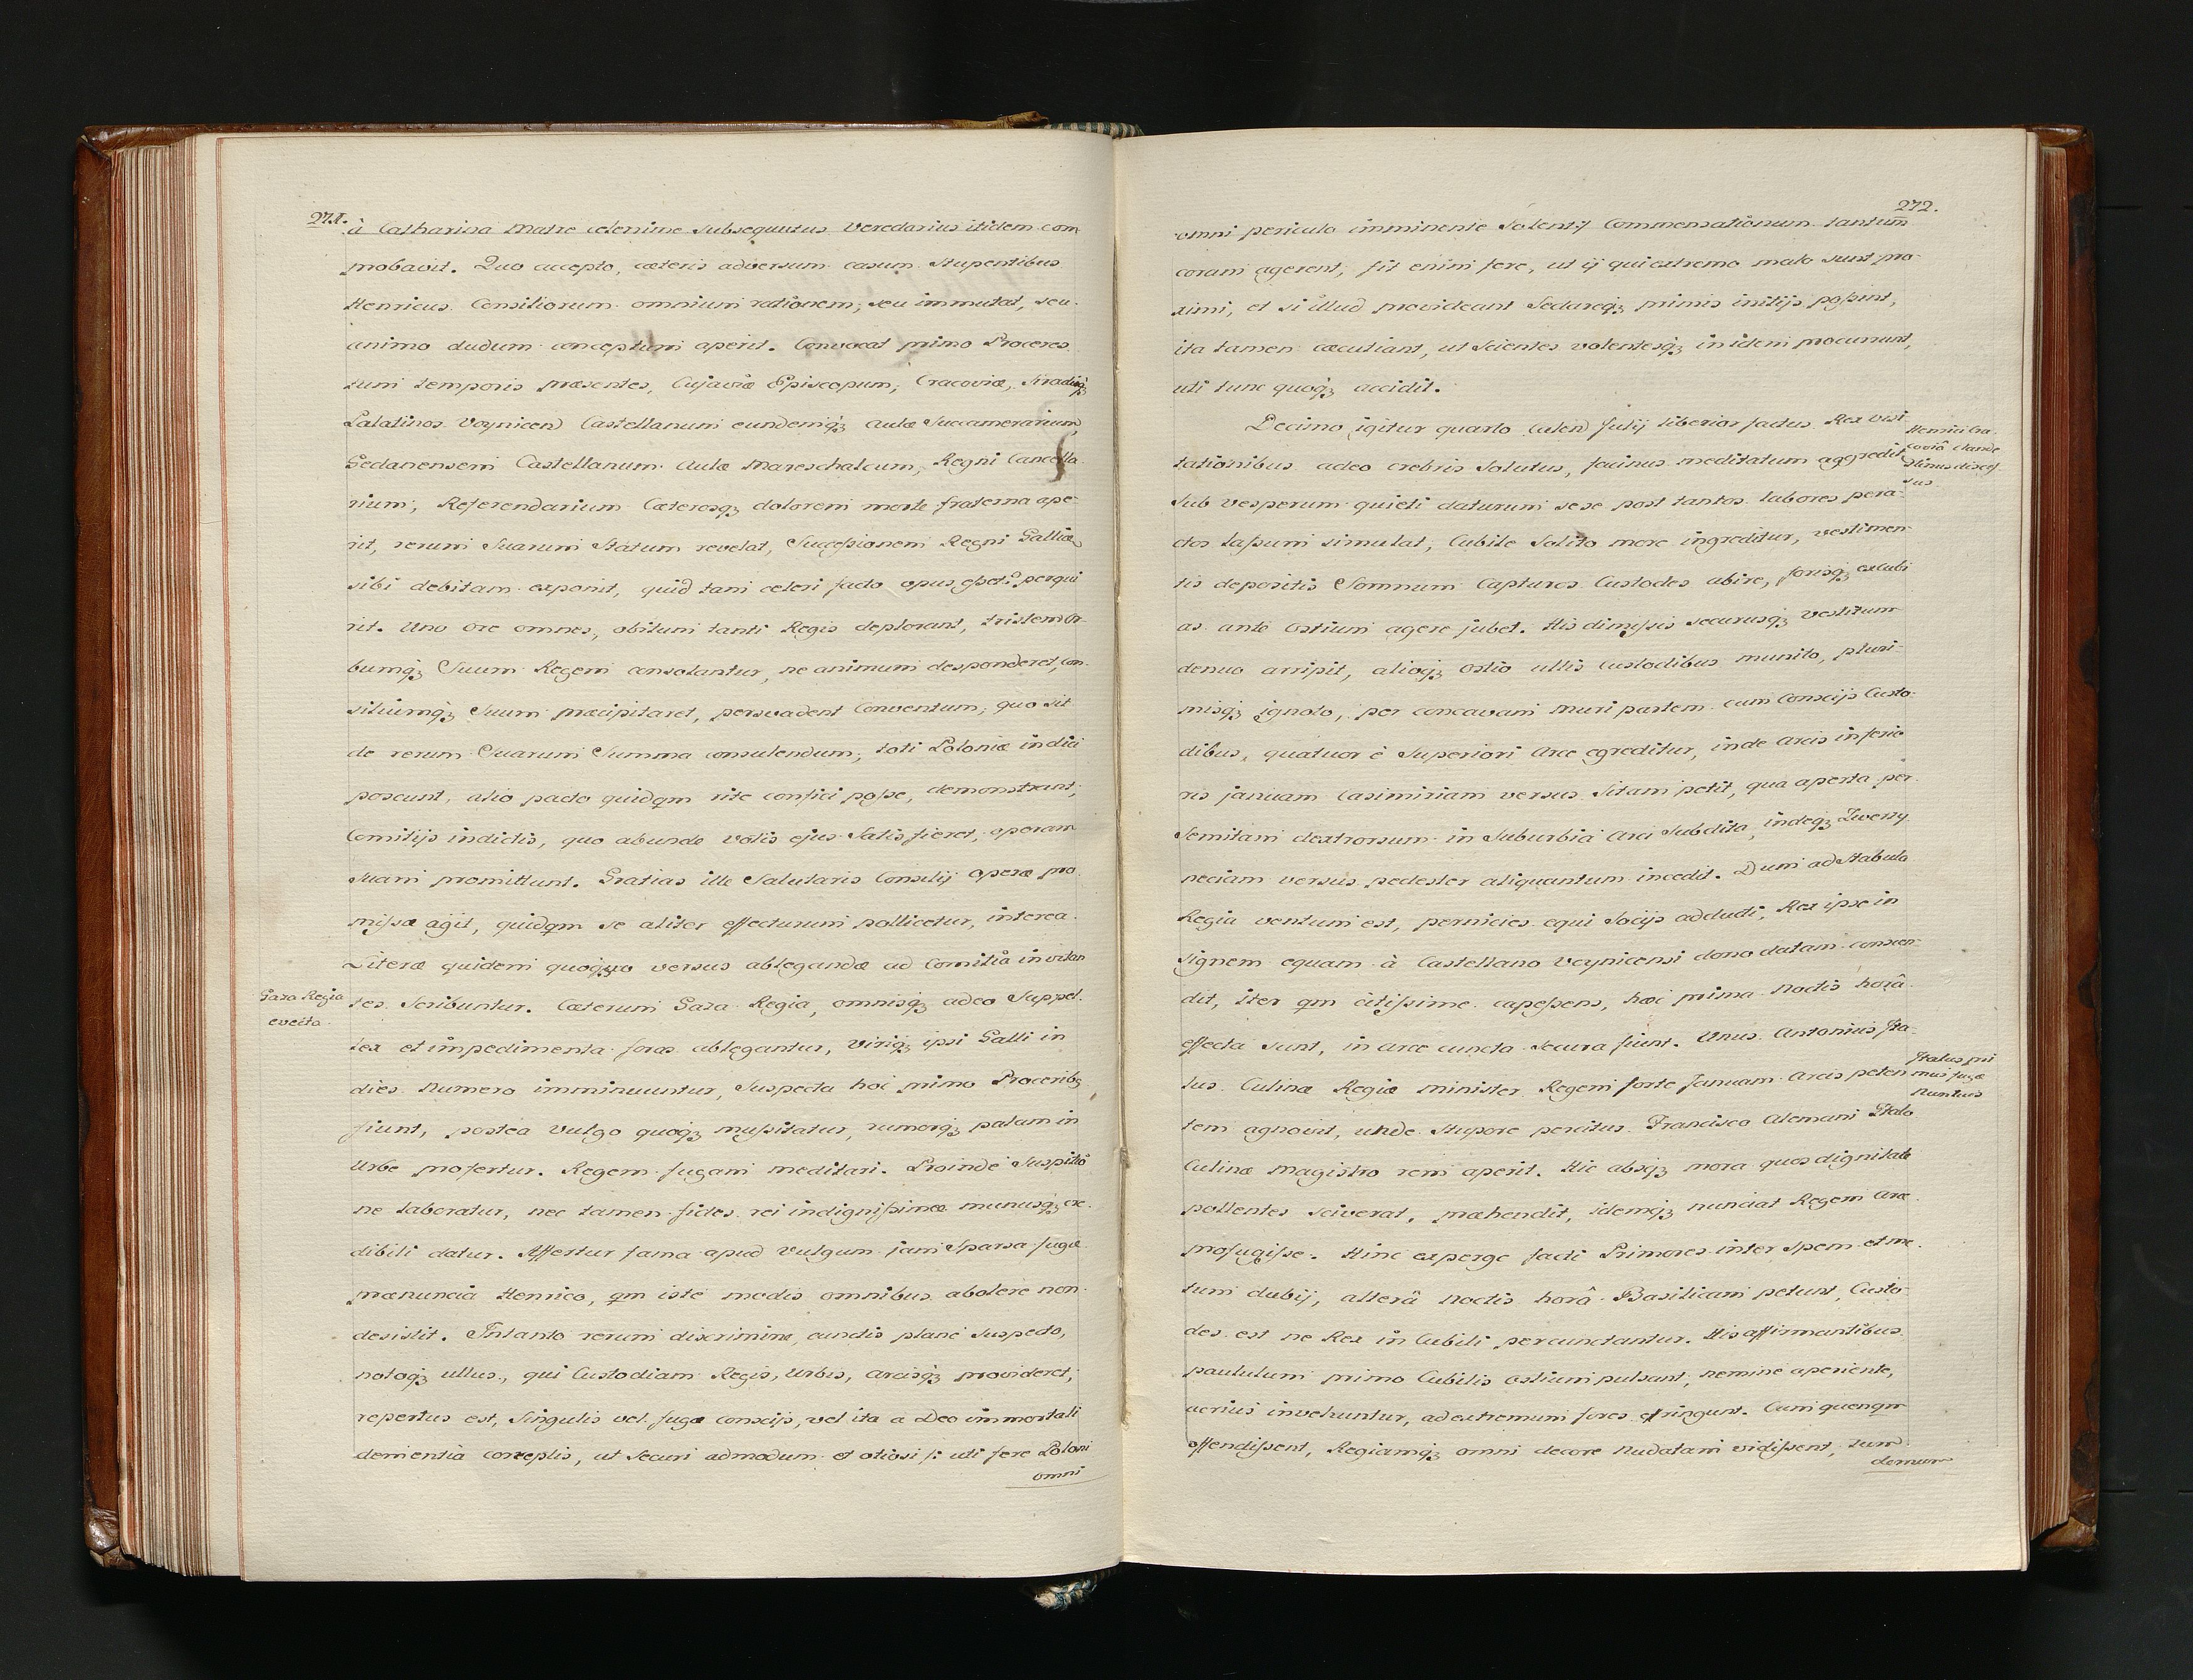 271.
à Catharina Matre celerrime subsequutus Veredarius itidem com
probavit. Quo accepto, cæteris adversum casum stupentibus
Henricus Consiliorum omnium rationem; seu immutat, seu
animo dudum conceptum aperit. Convocat primo Proceres
tum temporis præsentes, Cujaviæ Episcopum, Cracoviæ, Siradiæq3
Palatinos Voynicen Castellanum eundemq3 aulæ Succamerarium,
Gedanensem Castellanum Aulæ Mareschalcum, Regni Cancella
rium, Referendarium Cæterosq3 dolorem morte fraterna ape
rit, rerum Suarum Statum revelat, Successionem Regni Galliæ
sibi debitam exponit, quid tam celeri facto opus esset? perqui
rit. Uno ore omnes, obitum tanti Regis deplorant, tristem or
bumq3 Suum Regem consolantur, ne animum desponderet, con
siliumq3 Suum præcipitaret, persvadent Conventum, quo sit
de rerum Suarum Summa consulendum, toti Poloniæ indici
poscunt, alio pacto quidqm rite confici posse, demonstrant;
Comitijs indictis, quo abunde votis ejus Satis fieret, operam
suam promittunt. Gratias ille Salutaris Consilij operæ pro
missæ agit, quidqm se aliter effecturum pollicetur, interea
Literæ quidem quoquo versus ablegandæ ad Comitia invitan
Gaza Regia
evecta.
tes Scribuntur. Cæterum Gaza Regia, omnisq3 adeo Suppel
lex et impedimenta foras ablegantur, viriq3 ipsi Galli in
dies numero imminuuntur, Suspecta hoc primo Procerib3
fiunt, postea vulgo quoq3 mussitatur, rumorq3 palam in
Urbe profertur. Regem fugam meditari. Proinde Suspitio
ne laboratur, nec tamen fides rei indignissimæ minusq3 cre
dibili datur. Affertur fama apud vulgum jam Sparsa fugæ
prænuncia Henrico, qm iste modis omnibus abolere non
desistit. In tanto rerum discrimine, cunctis plane Suspecto,
notoq3 ullus, qui Custodiam Regis, Urbis, arcisq3 provideret,
repertus est, Singulis vel fugæ conscijs, vel ita a Deo immortali
dementia correptis, ut Securi admodum et otiosi /: uti fere Poloni
omni
272.
omni periculo imminente Solent :/ Commensationum tantum
coram agerent, fit enim fere, ut ij qui extremo malo sunt pro
ximi, et si illud provideant Sedareq3 primis initijs possint,
ita tamen cæcutiant, ut Scientes volentesq3 in idem procurrunt,
uti tunc quoq3 accidit.
Decimo igitur quarto Calen Julij liberior factus Rex visi
Henrici Cra
coviâ clande
stinus disces
sus.
tationibus adeo crebris Solutus, facinus meditatum aggredit
Sub vesperum quieti daturum sese post tantos labores pera
ctos lassum simulat, Cubile Solito more ingreditur, vestimen
tis depositis Somnum Capturos Custodes abire, forisq3 excubi
as ante Ostium agere jubet. His dimissis securusq3 vestitum
denuo arripit, alioq3 ostio ullis Custodibus munito, pluri
misq3 ignoto, per concavam Muri partem cum Conscijs Custo
dibus, quatuor è Superiori Arce egreditur, inde Arcis inferio
ris januam Casimiriam versus Sitam petit, qua aperta per
Semitam dextrorsum in Suburbia Arci Subdita, indeq3 Zwerzy
neciam versus pedester aliquantum incedit. Dum ad Stabula
Regia ventum est, pernicies equi Socijs adducti, Rex ipse in
signem equam à Castellano Voynicensi dono datam conscen
dit, iter qm citissime capessens, hæc prima Noctis horâ
effecta sunt, in Arce cuncta Secura fiunt. Unus Antonius Ita
lus Culinæ Regiæ minister Regem forte Januam Arcis peten
Italus pri
mus fugæ
Nuntius
tem agnovit, unde Stupore percitus Francisco Alemani Italo
Culinæ Magistro rem aperit. Hic absq3 mora quos dignitate
pollentes sciverat, præhendit, idemq3 nunciat Regem Arce
profugisse. Hinc experge facti Primores inter spem et me
tum dubij, alterâ Noctis horâ Basilicam petunt, Custo
des est ne Rex in Cubili percunctantur. His affirmantibus
paululum primo Cubilis Ostium pulsant, nemine aperiente,
acrius invehuntur, ad extremum fores effringunt. Cum quenqm
offendissent, Regiamq3 omni decore nudatam vidissent, tum
demum